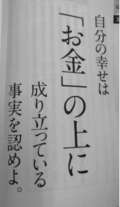 自分の幸せは
「お金」の上に
成り立っている
事実を認めよ。